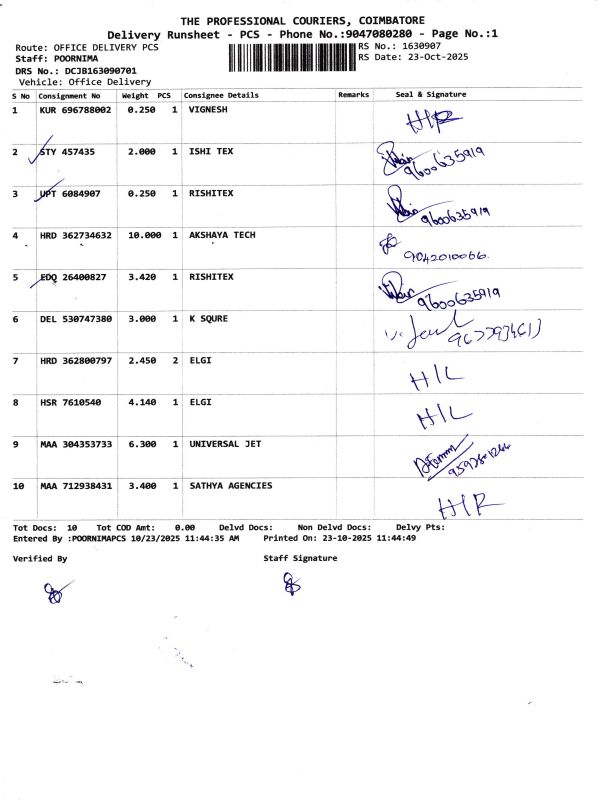 THE PROFESSIONAL COURIERS, COIMBATORE
Delivery Runsheet - PCS - Phone No.:9047080280 - Page No.:1
Route: OFFICE DELIVERY PCS RS No.: 1630907
Staff: POORNIMA RS Date: 23-Oct-2025
DRS No.: DCJB163090701
Vehicle: Office Delivery
S No Consignment No Weight PCS Consignee Details Remarks Seal & Signature
1 KUR 696788002 0.250 1 VIGNESH
2 STY 457435 2.000 1 ISHI TEX 9600635919
3 UPT 6084907 0.250 1 RISHITEX 9600635919
4 HRD 362734632 10.000 1 AKSHAYA TECH 9042010066.
5 EDQ 26400827 3.420 1 RISHITEX 9600635919
6 DEL 530747380 3.000 1 K SQURE
7 HRD 362800797 2.450 2 ELGI H/L
8 HSR 7610540 4.140 1 ELGI H/L
9 MAA 304353733 6.300 1 UNIVERSAL JET
10 MAA 712938431 3.400 1 SATHYA AGENCIES
Tot Docs: 10 Tot COD Amt: 0.00 Delvd Docs: Non Delvd Docs: Delvy Pts:
Entered By :POORNIMAPCS 10/23/2025 11:44:35 AM Printed On: 23-10-2025 11:44:49
Verified By Staff Signature